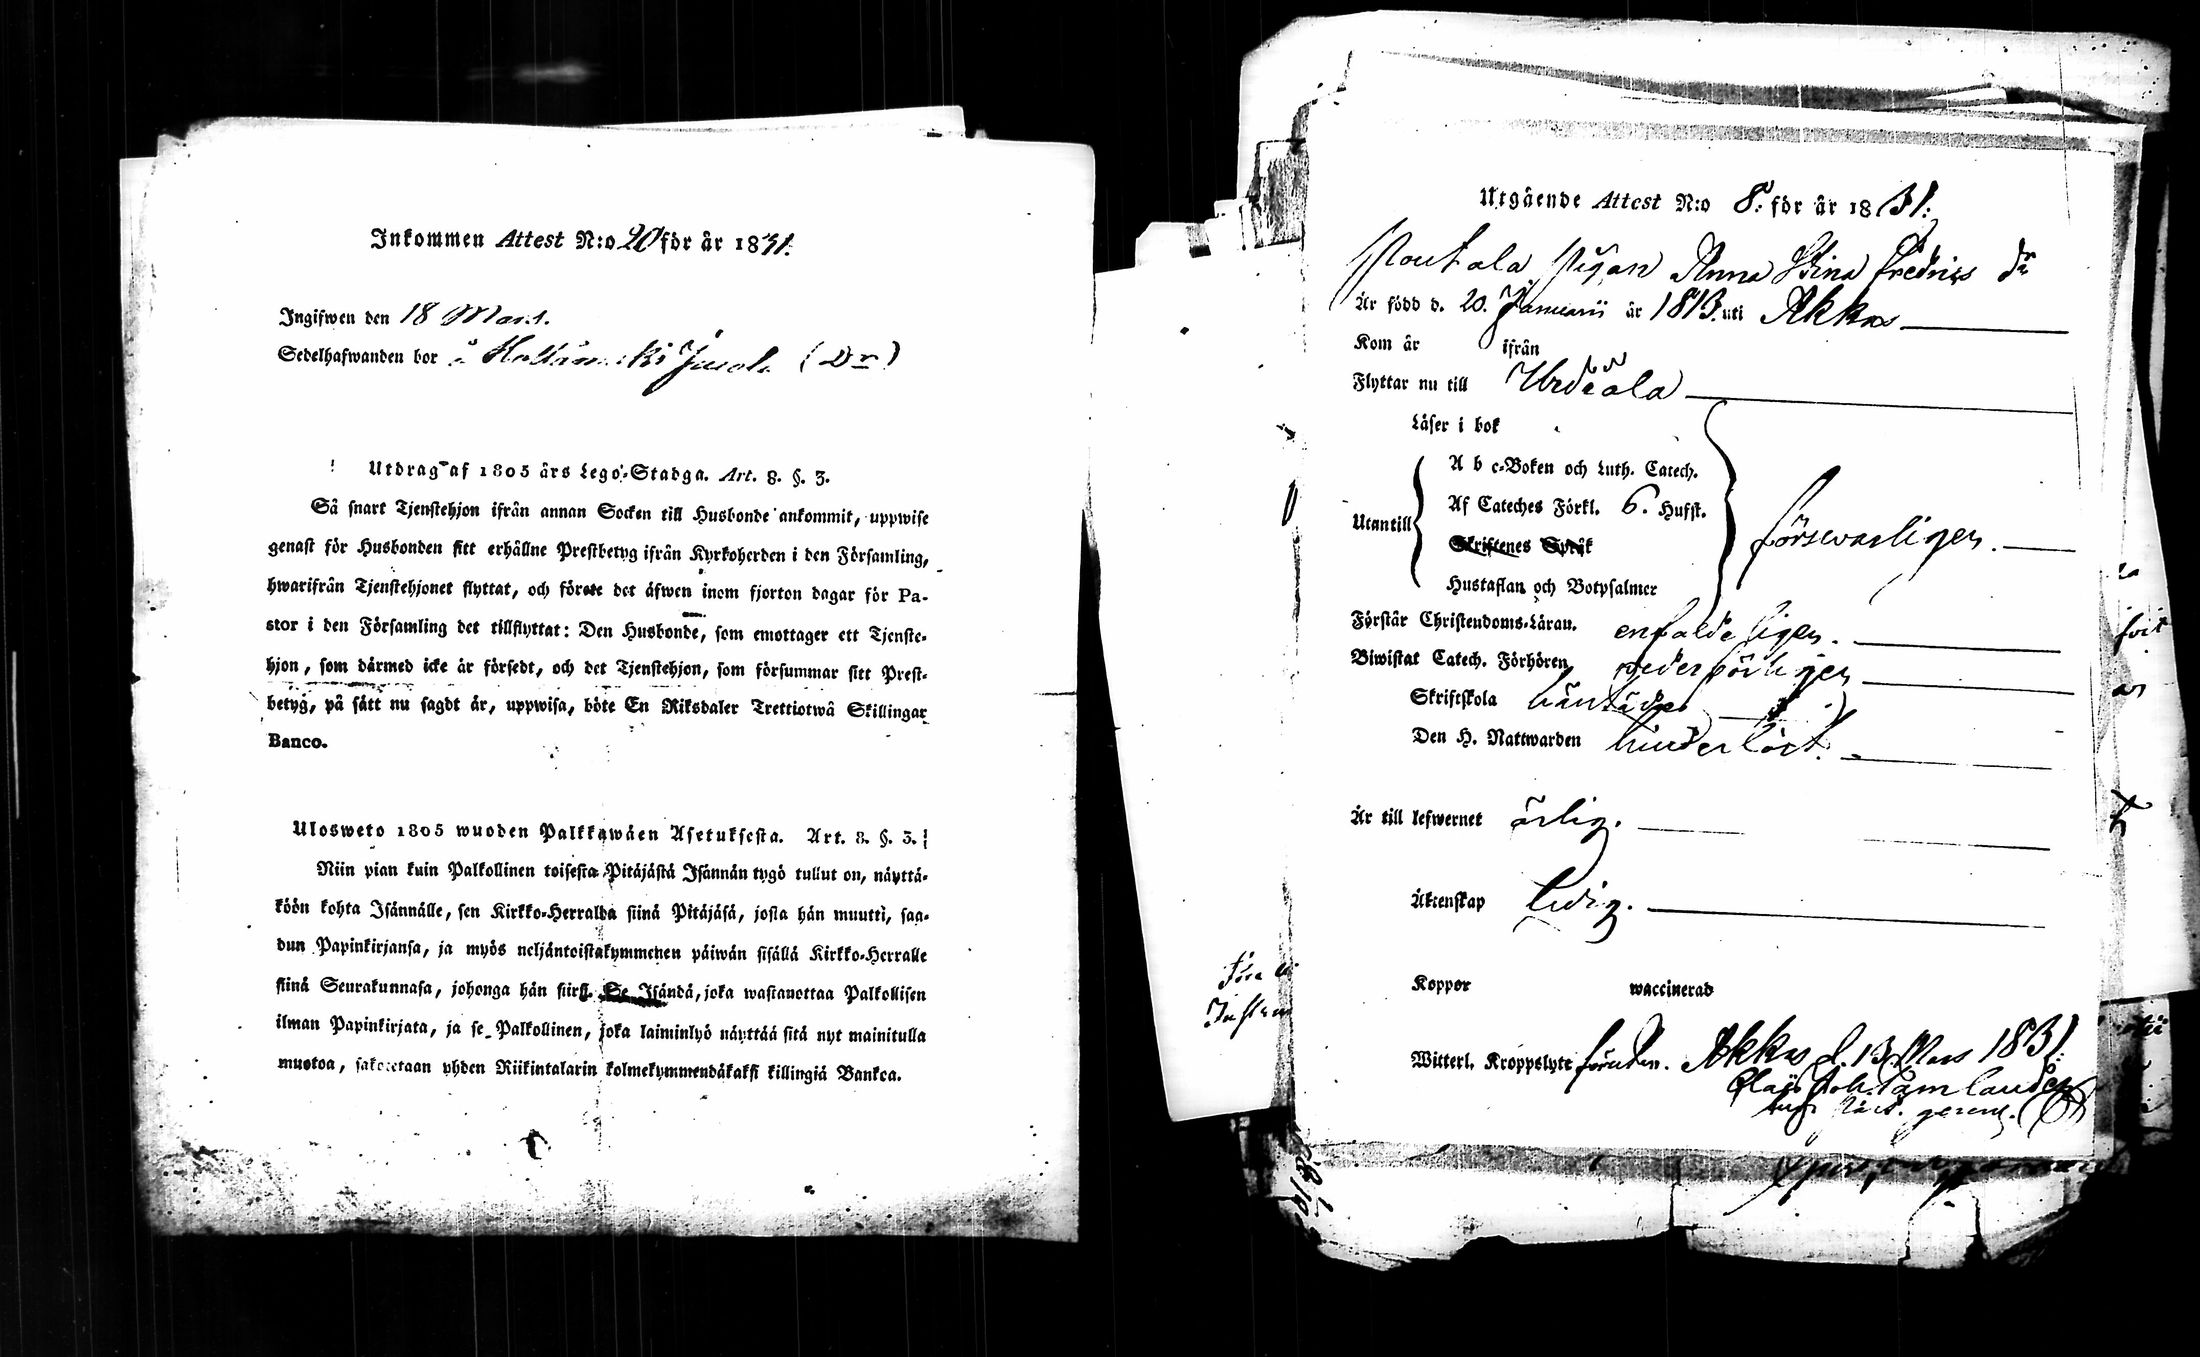 Inkommen Attest N:o 20 för år 1831.
Ingifwen den 18 Mart.
Sedelhafwanden bor å Jacob (Dr)
Utdrag af 1805 års Lego-Stadga. Art. 8. §. 3.
Så snart Tjenstehjon ifrån annan Socken till Husbonde ankommit, uppwise
genast för Husbonden sitt erhållne Prestbetyg ifrån Kyrkoherden i den Församling,
hwarifrån Tjenstehjonet flyttat, och förete det äfwen inom fjorton dagar för Pa-
stor i den Församling det tillflyttat: Den Husbonde, som emottager ett Tjenste-
hjon, som därmed icke är försedt, och det Tjenstehjon, som försummar sitt Prest-
betyg, på sätt nu sagdt är, uppwisa, böte En Riksdaler Trettiotwå Skillingar
Banco.
Ulosweto 1805 wuoden Palkkawäen Asetuksesta. Art. 8. §. 3.
Niin pian kuin Palkollinen toisesta Pitäjästä Isännän tygö tullut on, näyttä-
köön kohta Isännälle, sen Kirkko-Herralda siinä Pitäjäsä, josta hän muutti, saa-
dun Papinkirjansa, ja myös neljäntoistakymmenen päiwän sisällä Kirkko-Herralle
siinä Seurakunnasa, johonga hän siirsi. Se Isändä, joka wastanottaa Palkollisen
ilman Papinkirjata, ja se Palkollinen, joka laiminlyö näyttää sitä nyt mainitulla
muotoa, sakotetaan yhden Riikintalarin kolmekymmendäkaksi killingiä Bankoa.
Utgående Attest N:o 8. för år 1831.
Pigan Anna Stina Fredrics dr
Är född d. 20. Januarii år 1813. uti Akkas
Kom år ifrån
Flyttar nu till Urdiala
Läser i bok
A b c-Boken och Luth. Catech.
Utantill Af Cateches Förkl. 6. Hufst. försvarligen.
Skriftenes Språk
Hustaflan och Botpsalmer
Förstår Christendoms-Läran. enfaldeligen.
Biwistat Catech. Förhören wederbörligen
Skriftskola
Den H. Nattwarden hinderlöst.
Är till lefwernet ärlig.
Äktenskap ledig.
Koppor waccinerad
Witterl. Kroppslyte Akkas d. 13 Mars 1831.